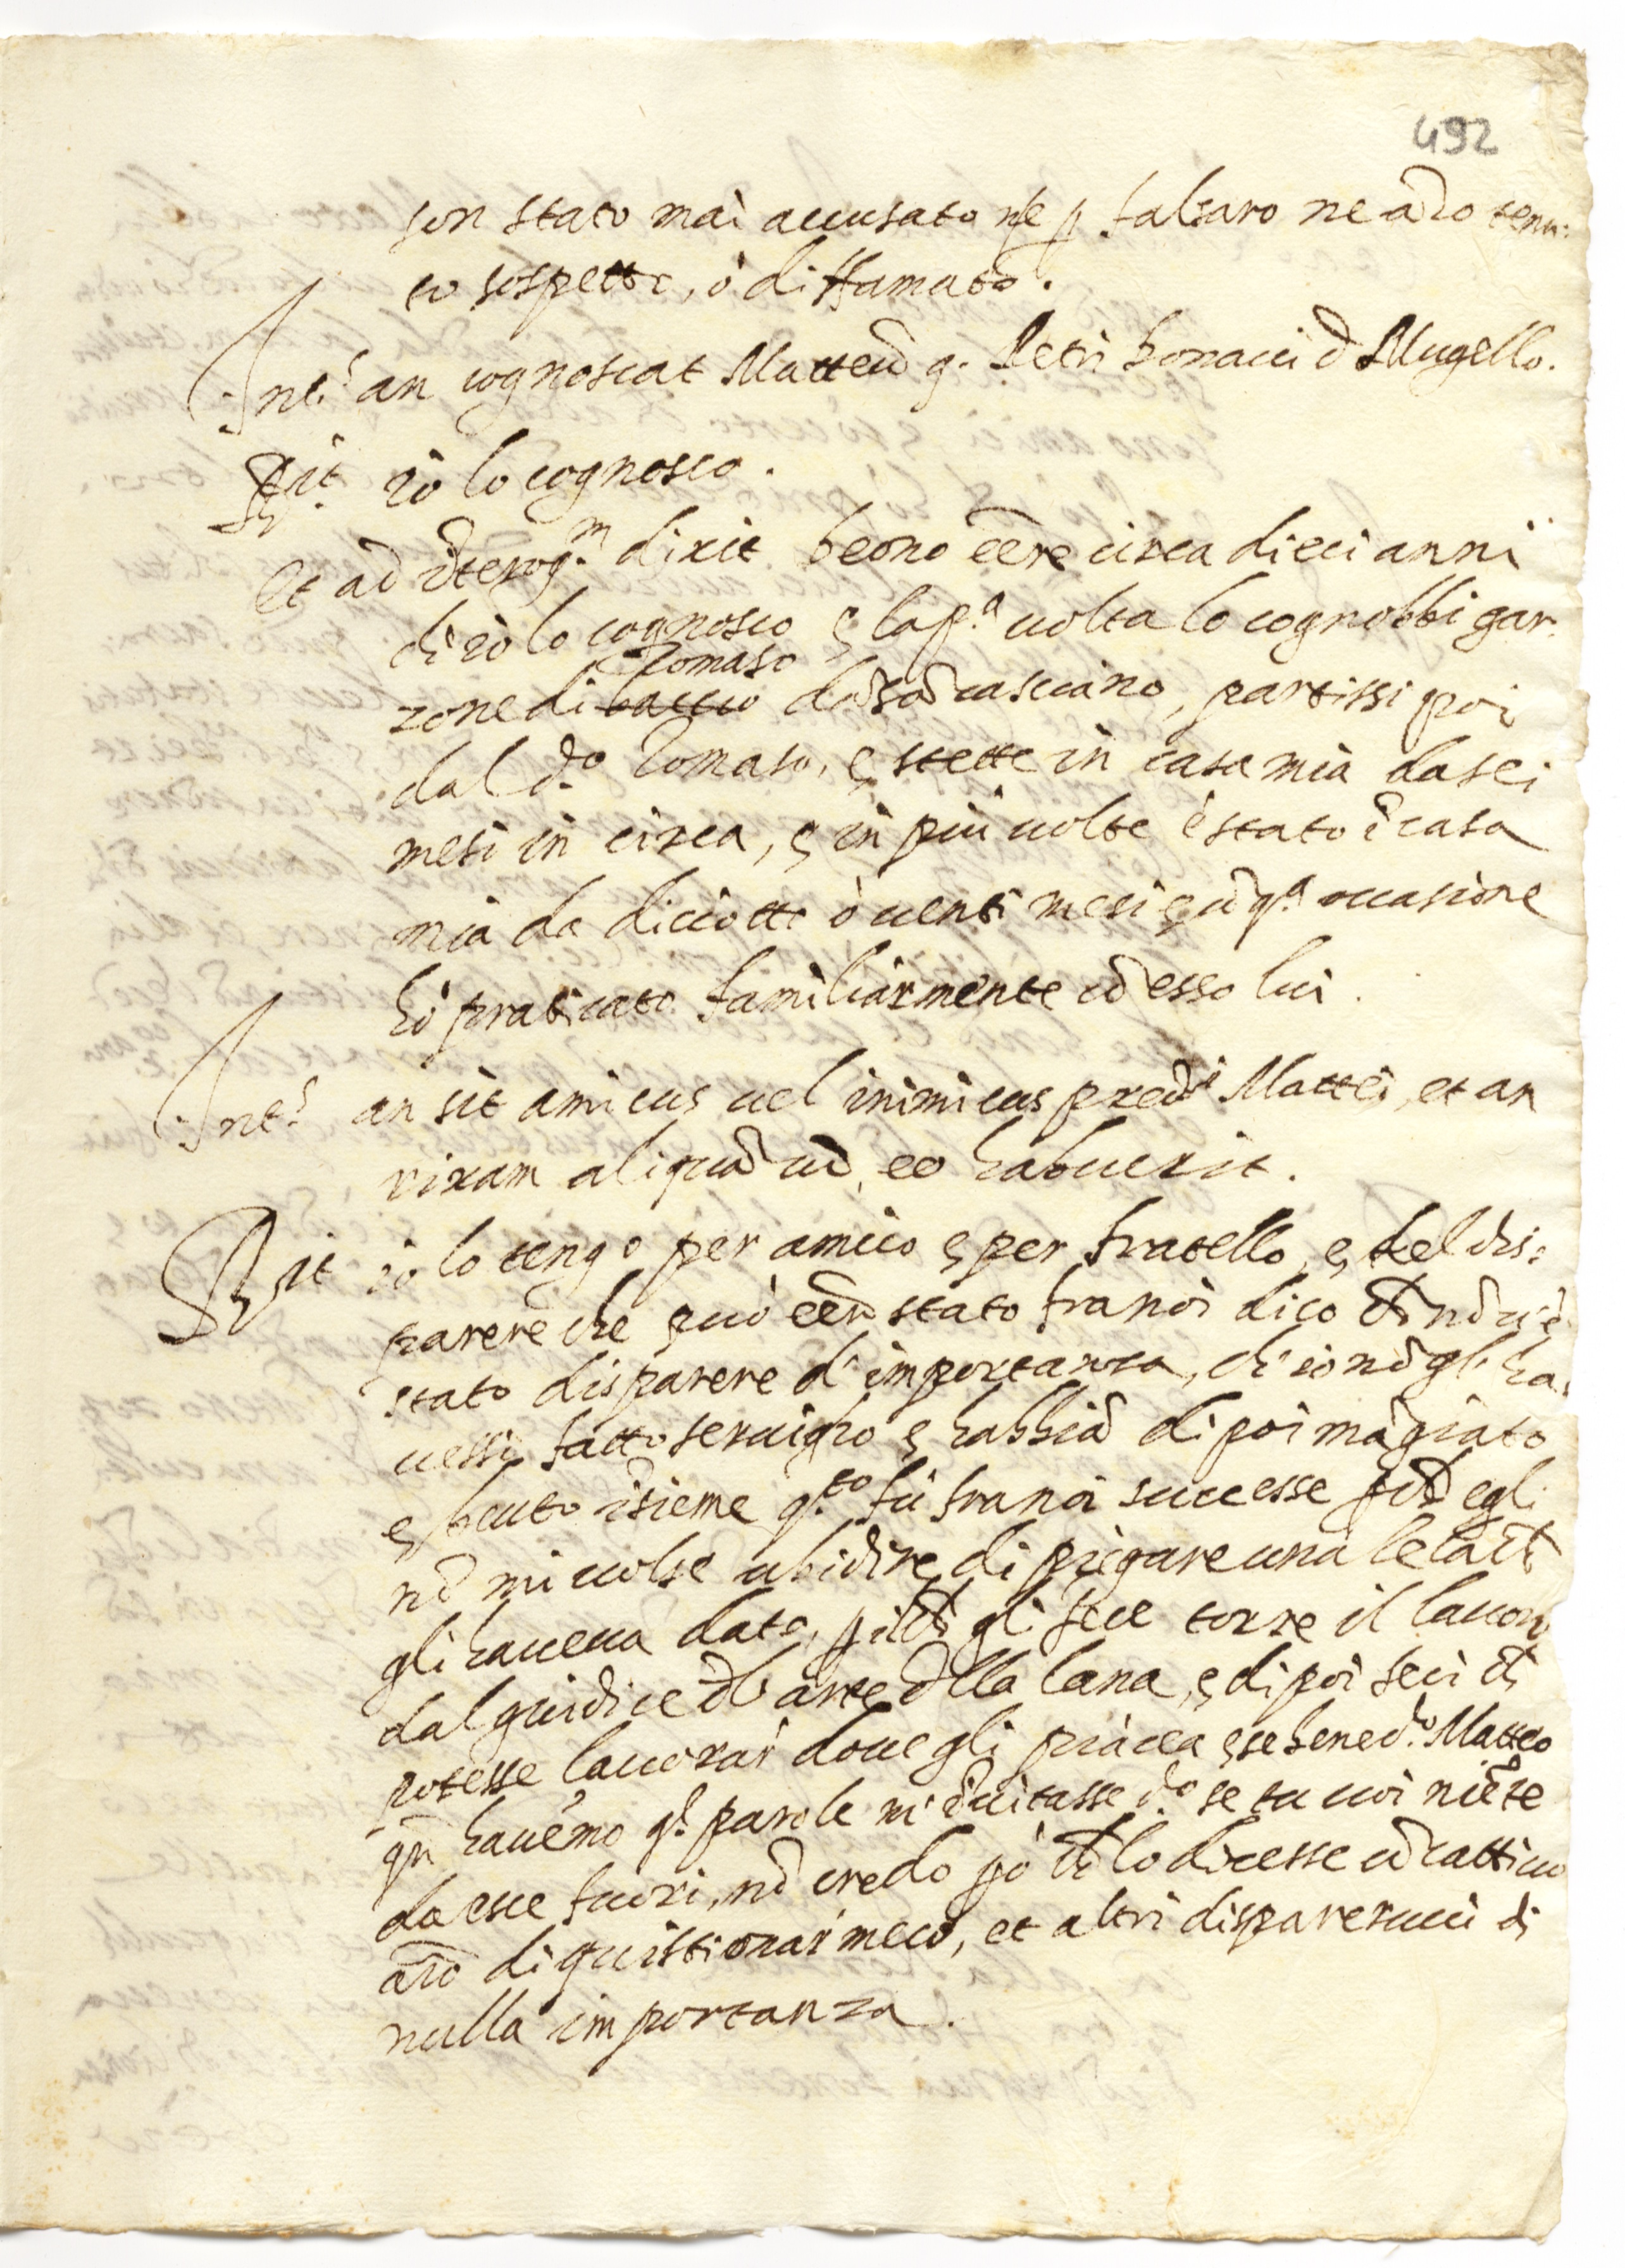 492
son stato mai accusato ne p falsaro ne ad̃o tenu:
to sospetto, ò diffamato.
Int.s an cognoscat Matteũ q. Petri bonacci d̃ Mugello.
Rñt. iò lo cognosco.
Et ad ĩterog.m dixit beono eẽre circa dieci anni
ch' iò lo cognosco e la p.a uolta lo cognobbi gar
Tomaso
zone di baccio da sã casciano, partissi poi
dal d.o Tomaso, e stette in casa mia da sei
mesi in circa, e in più uolte è stato ĩ casa
mia da diciotto ò uenti mesi e cõ q.a occasione
hò praticato familiarmente cõ esso lui.
Int.s an sit amicus uel inimicus pred.i Mattei, et an
rixam aliquã cũ eo habuerit.
Rñt iò lo tengo per amico e per fratello, e del dis:
parere che può eẽr stato fra noi dico ch̃ nõ ui è
stato disparere d'importanza, ch' io nõ gli ha:
uessi fatto seruigio e habbiã di poi mãgiato
e beuto ĩsieme q.to fù fra noi successe p ch̃ egli
nõ mi uolse ubidire di piegare una tela ch̃
gli haueua dato, p il ch̃ gli fece torre il lauoro
dal giudice d̃l'arte d̃lla lana, e di poi feci ch̃
potesse lauorar doue gli piacea e se bene d.o Matteo
qñ hauemo q.e parole mi ĩuitasse d.o se tu uoi niẽte
da esce fuori, nõ credo pò ch̃ lo dicesse cõ cattiuo
aĩo di quistionar meco, et altri disparerucci di
nulla importanza.